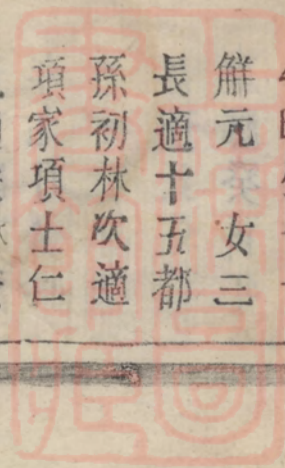 解元 女三
長適十五都
孫初林次適
項家項士仁